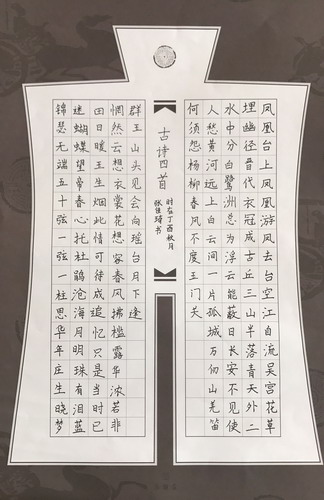 古诗四首
凤凰台上凤凰游凤去台空江自流吴宫花草
埋幽径晋代衣冠成古丘三山半落青天外二
水中分白鹭洲总为浮云能蔽日长安不见使
人愁黄河远上白云间一片孤城万仞山羌笛
何须怨杨柳春风不度玉门关
锦瑟无端五十弦一弦一柱思华年庄生晓梦
迷蝴蝶望帝春心托杜鹃沧海月明珠有泪蓝
田日暖玉生烟此情可待成追忆只是当时已
惘然云想衣裳花想容春风拂槛露华浓若非
群玉山头见会向瑶台月下逢
时在丁酉秋月
张佳琦书